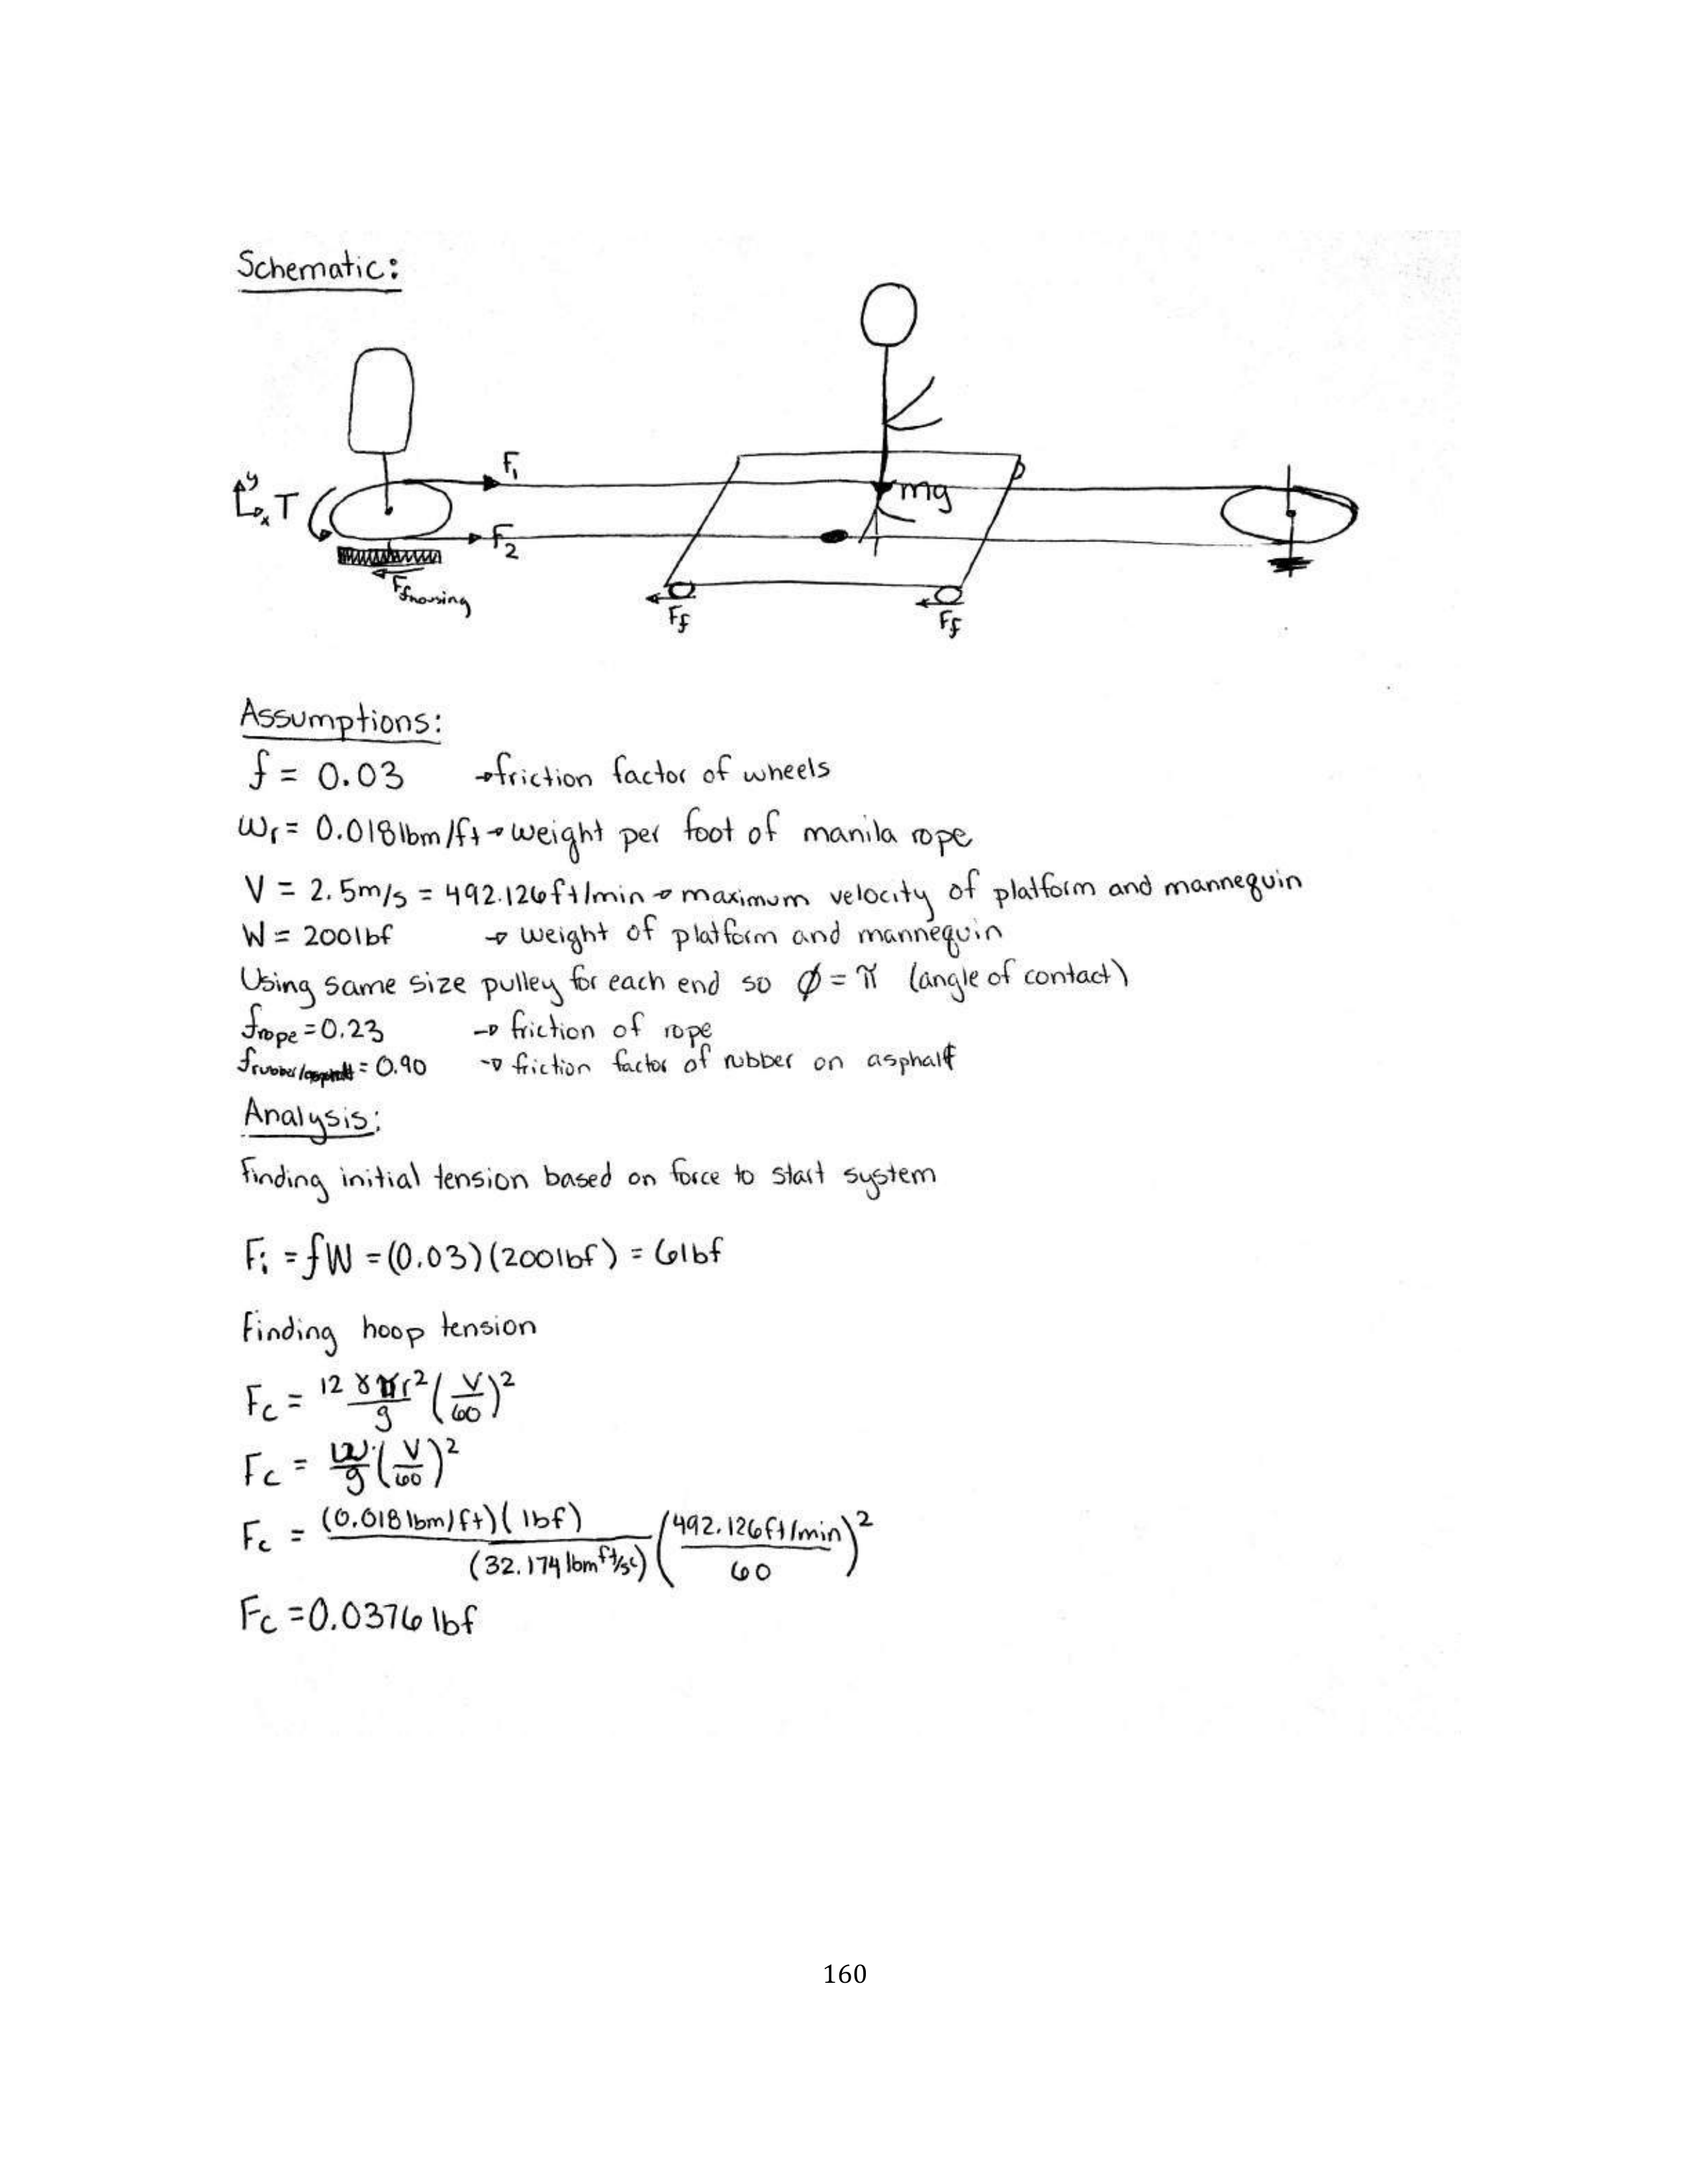 Schematic:
F₁
y
x
T
mg
F₂
F_fhousing
F_f
F_f
Assumptions:
f = 0.03 → friction factor of wheels
w_r = 0.018 lbm/ft → weight per foot of manila rope
V = 2.5m/s = 492.126ft/min → maximum velocity of platform and mannequin
W = 200lbf → weight of platform and mannequin
Using same size pulley for each end so ϕ = π (angle of contact)
f_rope = 0.23 → friction of rope
f_rubber/asphalt = 0.90 → friction factor of rubber on asphalt
Analysis:
Finding initial tension based on force to start system
F_i = fW = (0.03)(200lbf) = 6lbf
Finding hoop tension
F_c = 12 γπr²/g (V/60)²
F_c = w/g (V/60)²
F_c = (0.018 lbm/ft)(lbf)/(32.174 lbm ft/s²) (492.126ft/min/60)²
F_c = 0.0376 lbf
160